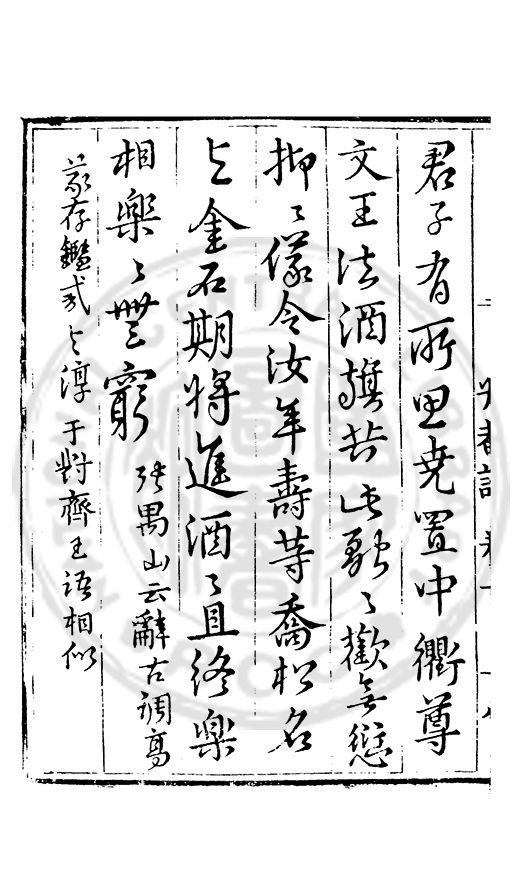 君子有所思堯置中衢尊
文王法酒旗共此融〻歡無愆
抑〻儀令汝年壽等喬松名
与金石期將進酒〻且終樂
相樂〻無窮 張禺山云辭古調高
箴存鑑戒与淳于對齊王語相似